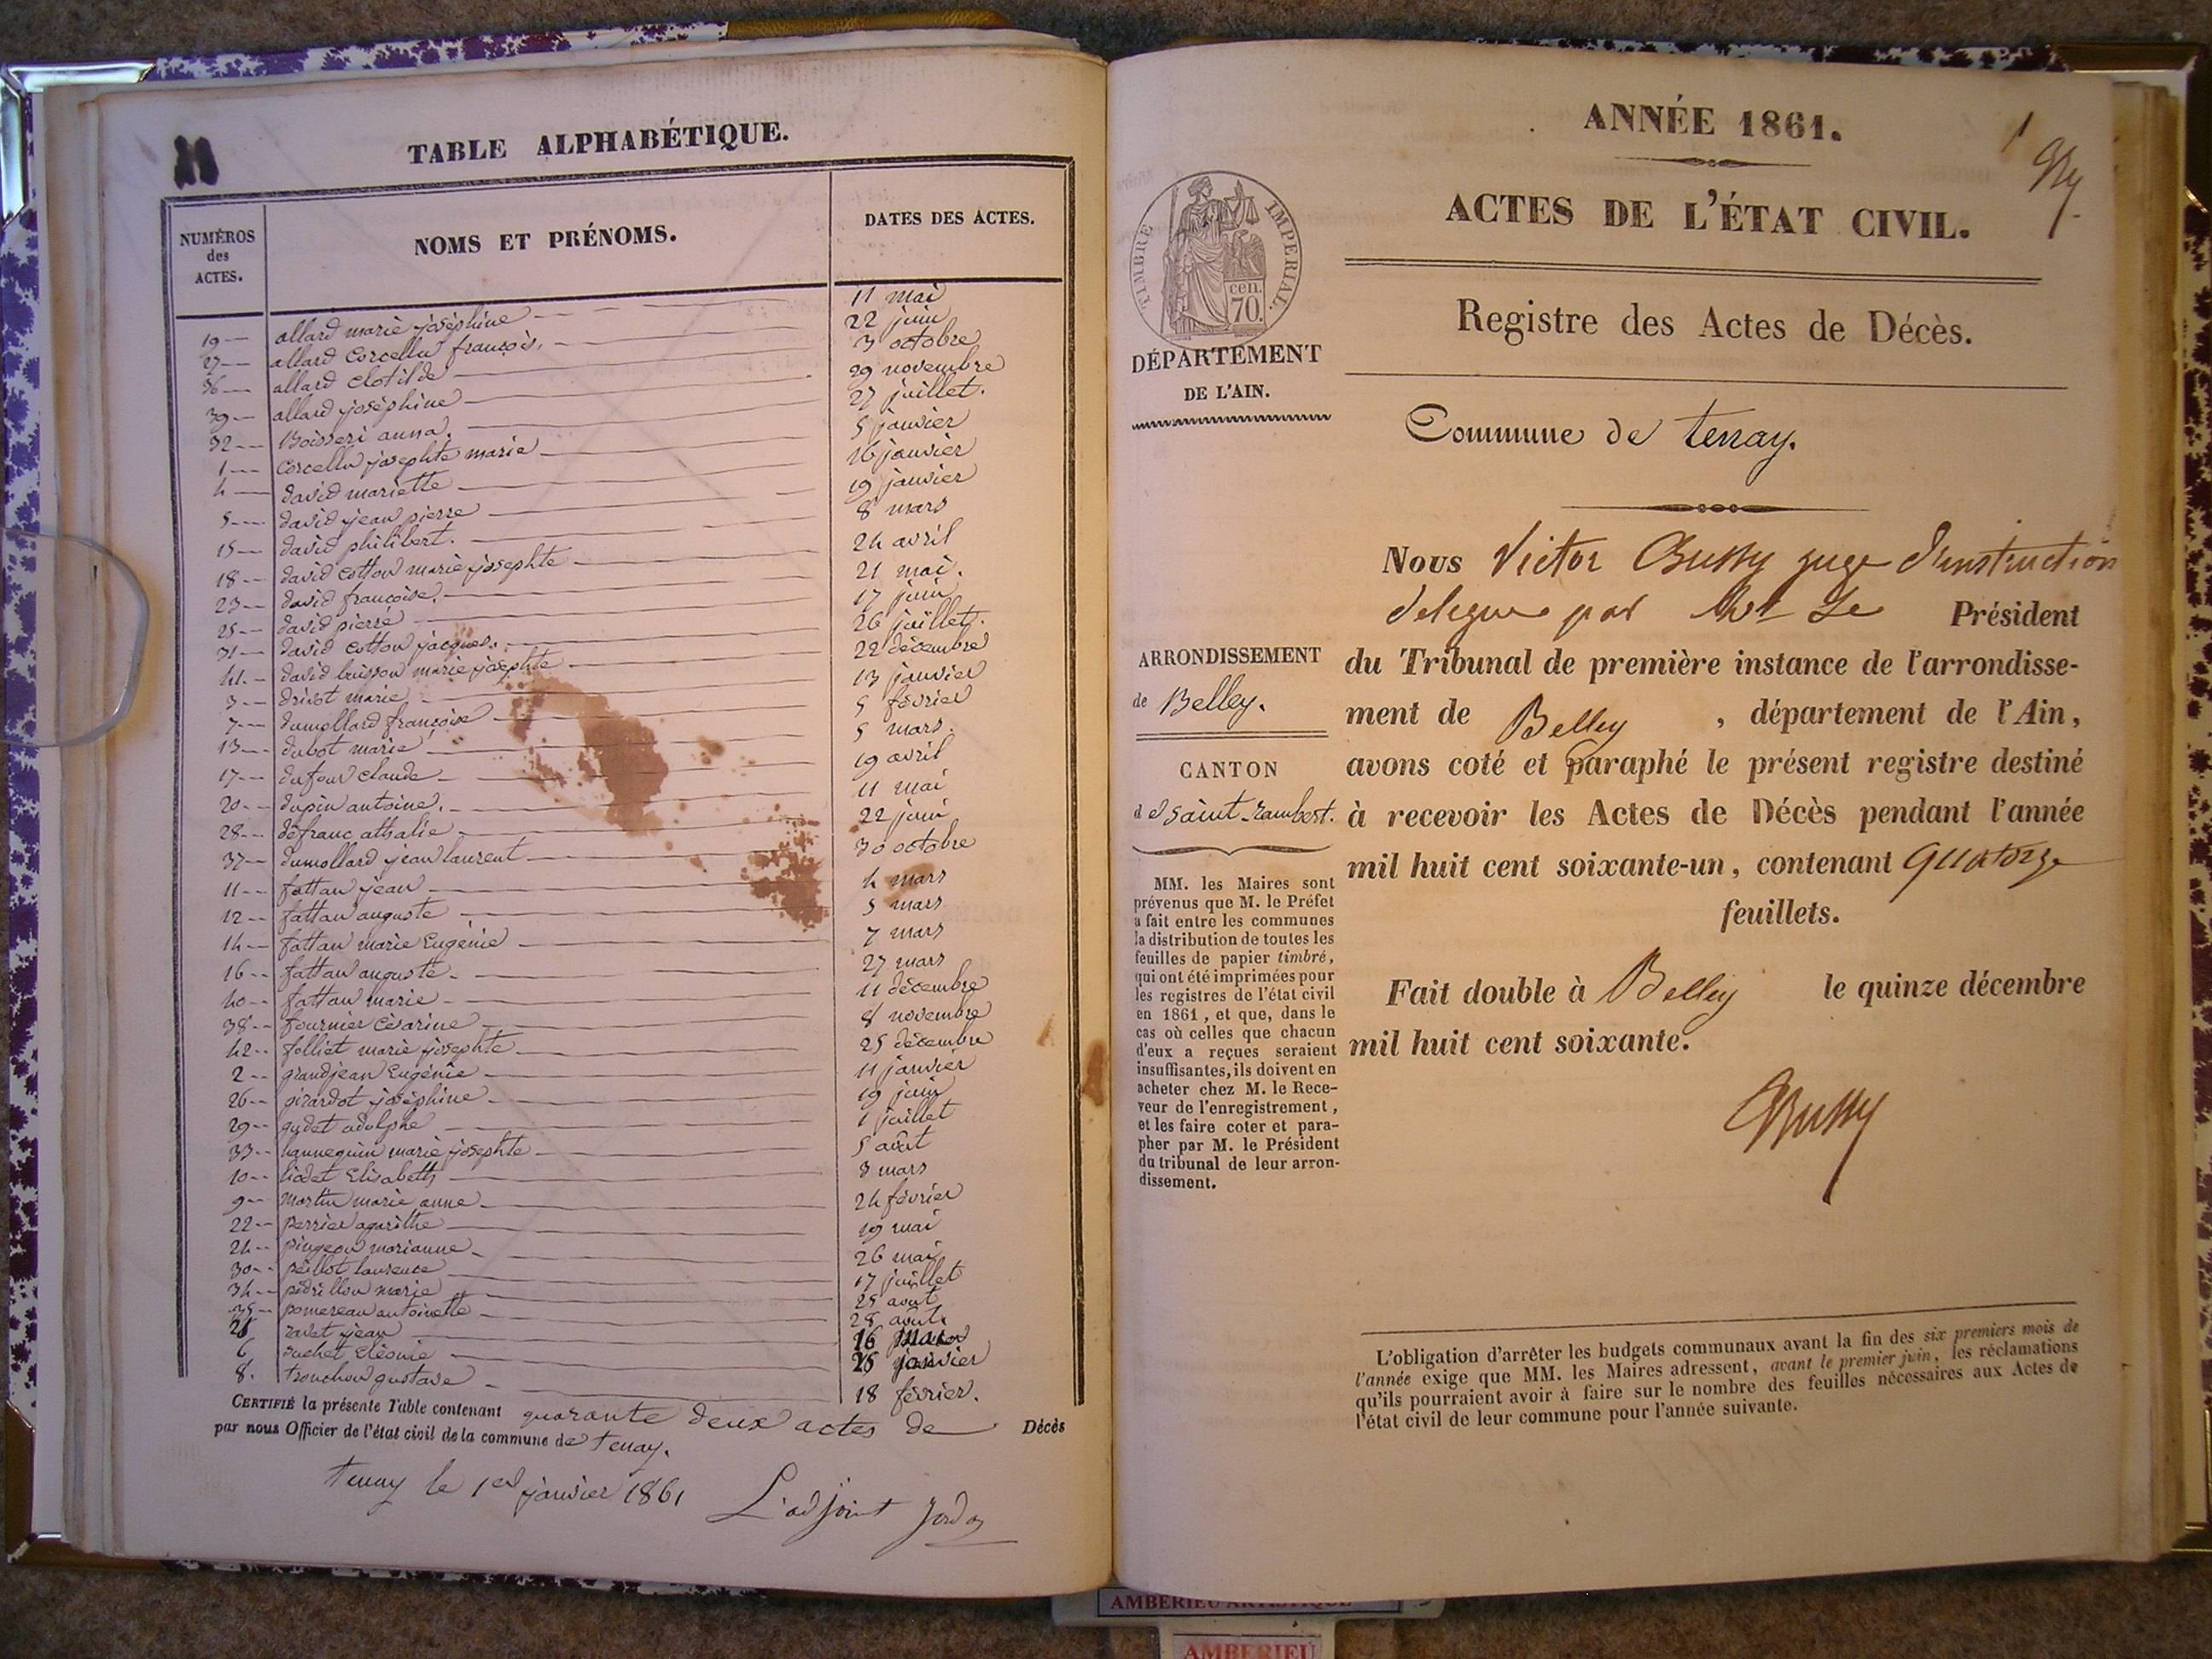 TABLE ALPHABÉTIQUE.
NUMÉROS des ACTES.
NOMS ET PRÉNOMS.
DATES DES ACTES.
19 allard marie joséphine 11 mai
27 allard Corcellu françois. 22 juin
36 allard clotilde 3 octobre
39 allard joséphine 29 novembre
32 Boisseri anna. 27 juillet.
1 Corcellu josephte marie 5 janvier
4 david mariette 16 janvier
5 david jean pierre 19 janvier
15 david philibert. 8 mars
18 david cotton marie josephte 24 avril
23 david françoise. 21 mai.
25 david pierre 17 juin
31 david cotton jacques. 26 juillet.
41 david buisson marie josephte 22 décembre
3 drivot marie 13 janvier
7 dumollard françoise 5 février
13 dubot marie 5 mars.
17 dufour claude 19 avril
20 dupin antoine. 11 mai
28 défranc athalie 22 juin
37 dumollard jean laurent 30 octobre
11 fattan jean 4 mars
12 fattan auguste 5 mars
14 fattan marie Eugénie 7 mars
16 fattan auguste 27 mars
40 fattan marie 11 décembre
38 fournier Césarine 8 novembre
42 folliet marie josephte 25 décembre
2 grandjean Eugénie 11 janvier
26 girardot joséphine 19 juin
29 gudet adolphe 1 juillet
33 hannequin marie josephte 5 août
10 liodet Elisabeth 3 mars
9 martin marie anne 24 février
22 perrier agarithe 19 mai
24 pingeon marianne 26 mai
30 peillot laurence 17 juillet
34 pédrillon marie 25 août
35 pomereau antoinette 28 août.
21 ravet jean 16 mai
6 ruchet Cléonie 25 janvier
8. tronchon gustave 18 février.
CERTIFIÉ la présente Table contenant quarante deux actes de Décès
par nous Officier de l'état civil de la commune de tenay.
tenay le 1er janvier 1861
L'adjoint
ANNÉE 1861.
1
ACTES DE L'ÉTAT CIVIL.
TIMBRE IMPERIAL.
cen.
70.
Registre des Actes de Décès.
DÉPARTEMENT
DE L'AIN.
Commune de tenay.
Nous Victor Bussy juge d'instruction
délégué par Mr Le Président
du Tribunal de première instance de l'arrondisse-
ment de Belley, département de l'Ain,
avons coté et paraphé le présent registre destiné
à recevoir les Actes de Décès pendant l'année
mil huit cent soixante-un, contenant quatorze
feuillets.
Fait double à Belley le quinze décembre
mil huit cent soixante.
Bussy
ARRONDISSEMENT
de Belley.
CANTON
d e saint-rambert.
MM. les Maires sont
prévenus que M. le Préfet
a fait entre les communes
la distribution de toutes les
feuilles de papier timbré,
qui ont été imprimées pour
les registres de l'état civil
en 1861, et que, dans le
cas où celles que chacun
d'eux a reçues seraient
insuffisantes, ils doivent en
acheter chez M. le Rece-
veur de l'enregistrement,
et les faire coter et para-
pher par M. le Président
du tribunal de leur arron-
dissement.
L'obligation d'arrêter les budgets communaux avant la fin des six premiers mois de
l'année exige que MM. les Maires adressent, avant le premier juin, les réclamations
qu'ils pourraient avoir à faire sur le nombre des feuilles nécessaires aux Actes de
l'état civil de leur commune pour l'année suivante.
AMBERIEU ARTISTIQUE
AMBERIEU